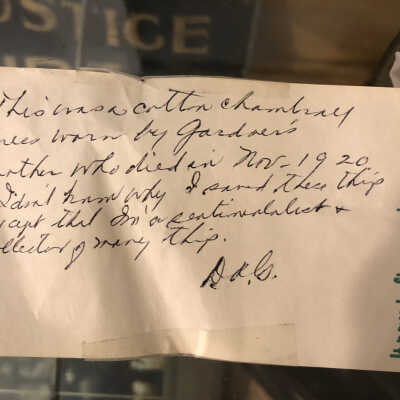 USTICE
This was a cotton chambray
worn by Gardner's
mother who died in Nov- 1920
I don't know why I saved these thip
except that I'm a sentimentalist &
collector of many thip.
D. A. G.